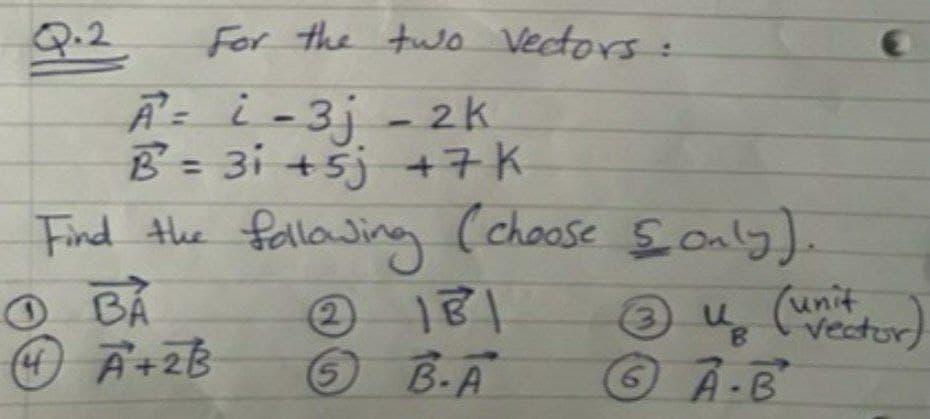 Q.2 For the two Vectors :
A⃗ = i - 3j - 2k
B⃗ = 3i + 5j + 7k
Find the following (choose 5 only).
① B⃗A ② |B⃗| ③ u_B (unit vector)
④ A⃗ + 2B⃗ ⑤ B⃗ . A⃗ ⑥ A⃗ . B⃗